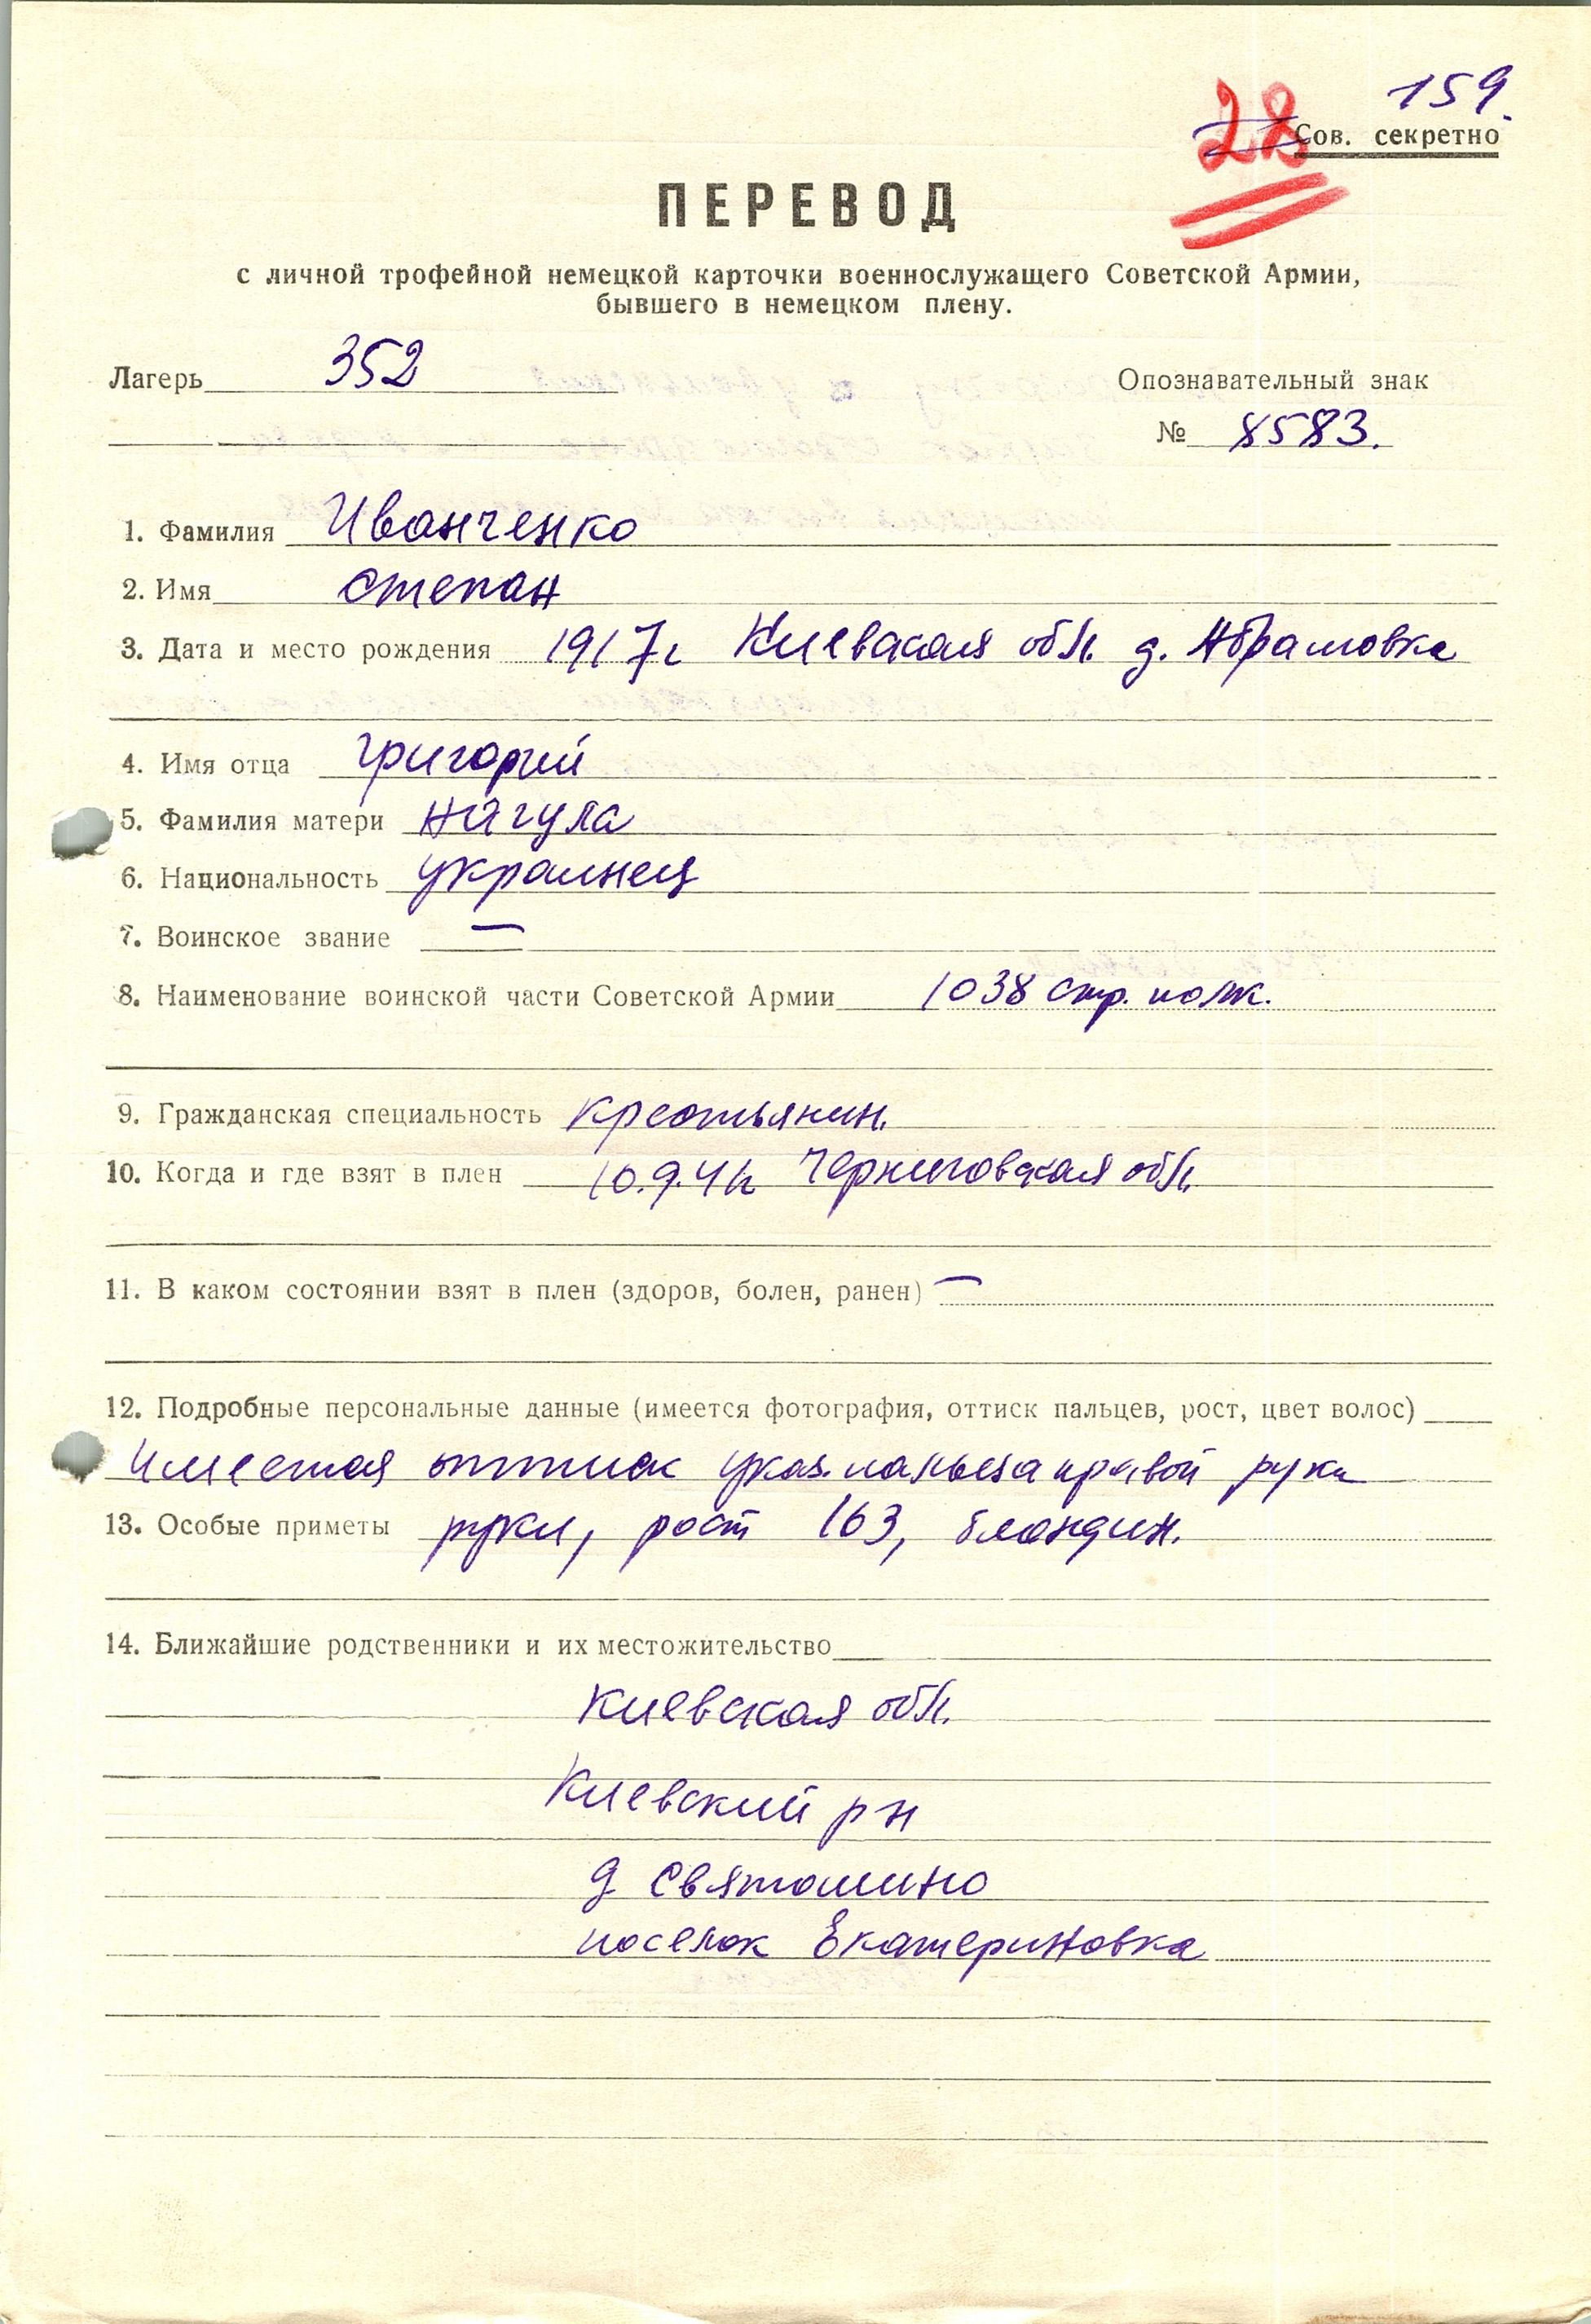 159.
28
Сов. секретно
ПЕРЕВОД
с личной трофейной немецкой карточки военнослужащего Советской Армии,
бывшего в немецком плену.
Лагерь 352
Опознавательный знак
№ 8583.
1. Фамилия Иванченко
2. Имя Степан
3. Дата и место рождения 1917г Киевская обл. д. Абрамовка
4. Имя отца Григорий
5. Фамилия матери Нагула
6. Национальность украинец
7. Воинское звание —
8. Наименование воинской части Советской Армии 1038 стр. полк.
9. Гражданская специальность крестьянин.
10. Когда и где взят в плен 10.9.41г Черниговская обл.
11. В каком состоянии взят в плен (здоров, болен, ранен) —
12. Подробные персональные данные (имеется фотография, оттиск пальцев, рост, цвет волос)
Имеется оттиск указ. пальца правой руки
13. Особые приметы руки, рост 163, блондин.
14. Ближайшие родственники и их местожительство
Киевская обл.
Киевский рн
д Святошино
поселок Екатериновка